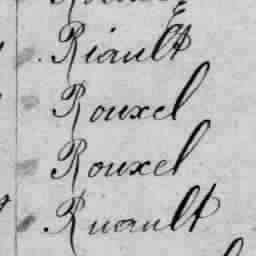 Riault
Rouxel
Rouxel
Ruault